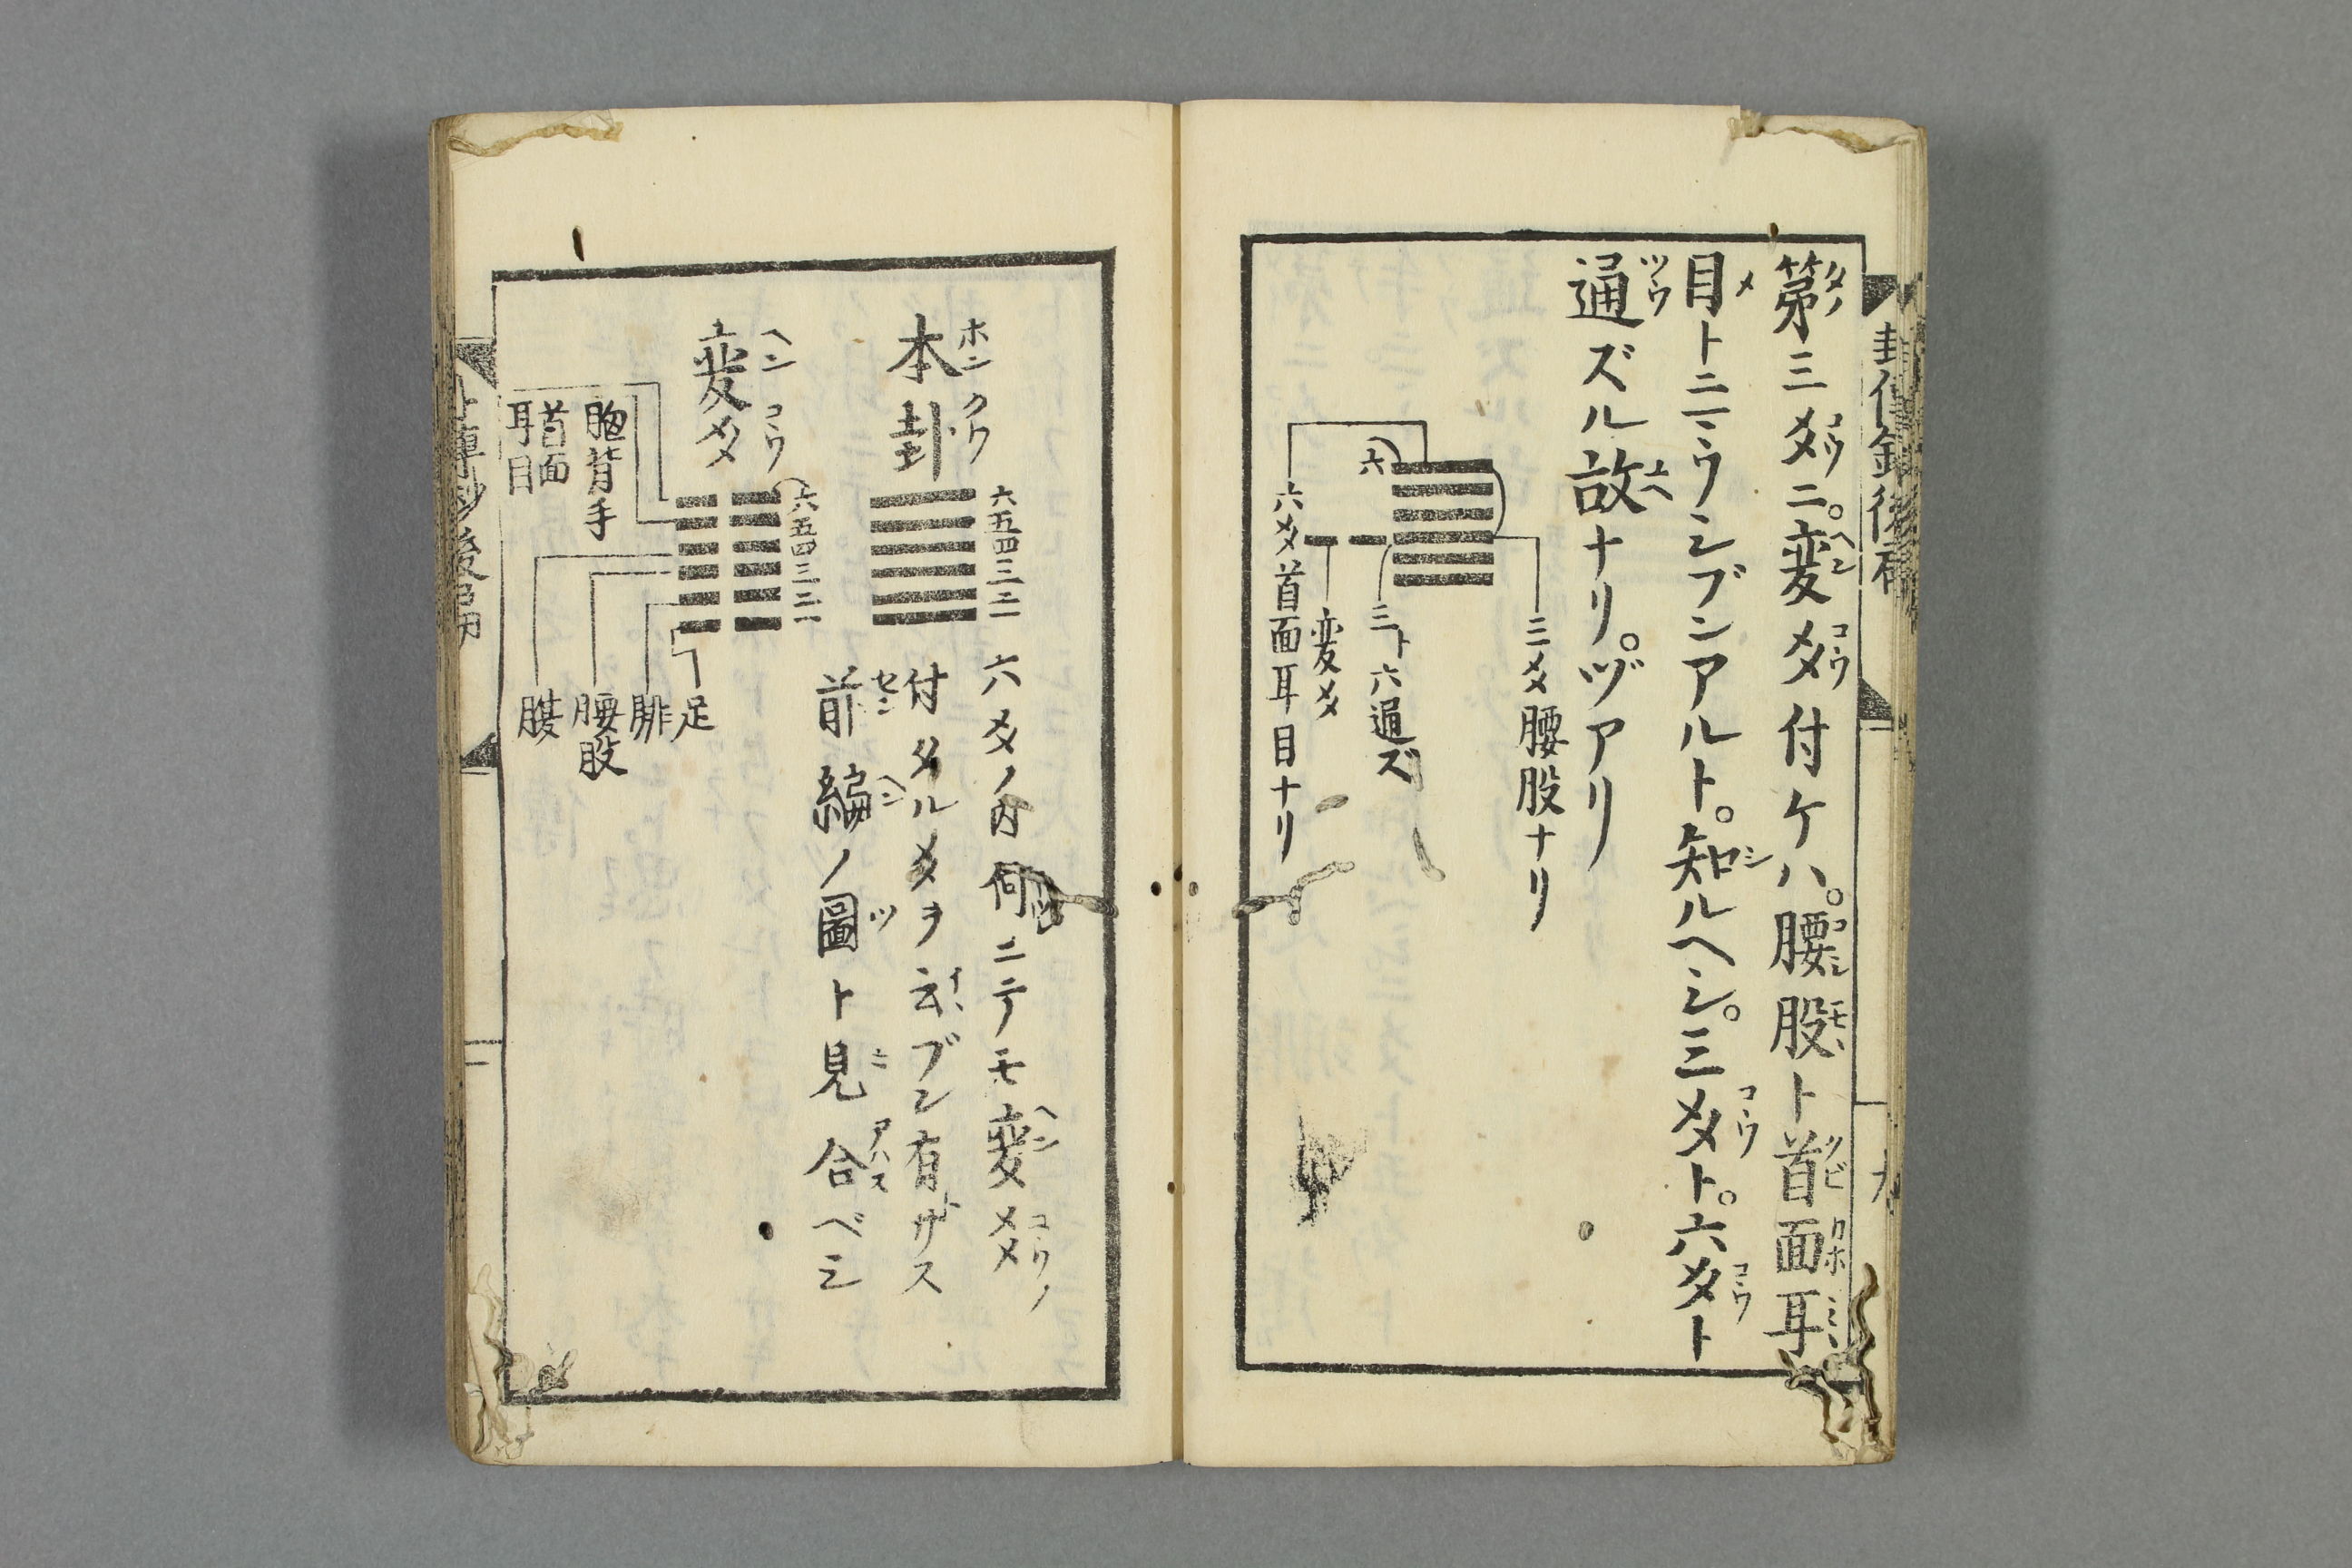 第三爻ニ。変爻付ケハ。腰股ト首面耳
目トニヨウシブンアルト。知ルヘシ。三爻ト。六爻ト
通ズル故ナリ。ヅアリ
三爻腰股ナリ
六
三ト六通ズ
変爻
六爻首面耳目ナリ
六爻ノ内何ニテモ変爻ノ
付タルメヲ云ブン有サス
前編ノ圖ト見合ベシ
本卦
六五四三二一
変爻
六五四三二一
胸背手
首面
耳目
足
腓
腰股
腹